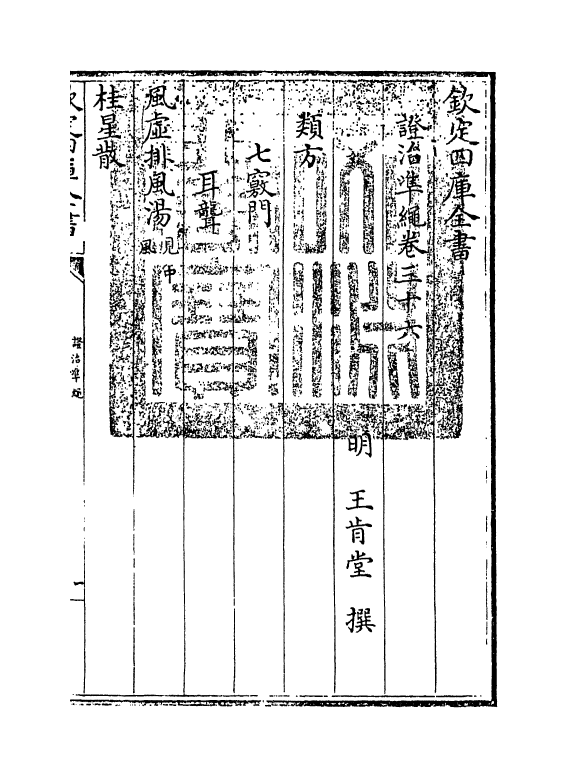 欽定四庫全書
證治準繩卷三十六
明 王肯堂 撰
類方
七竅門
耳聾
風虛排風湯見中風
桂星散
欽定四庫全書
證治準繩
一